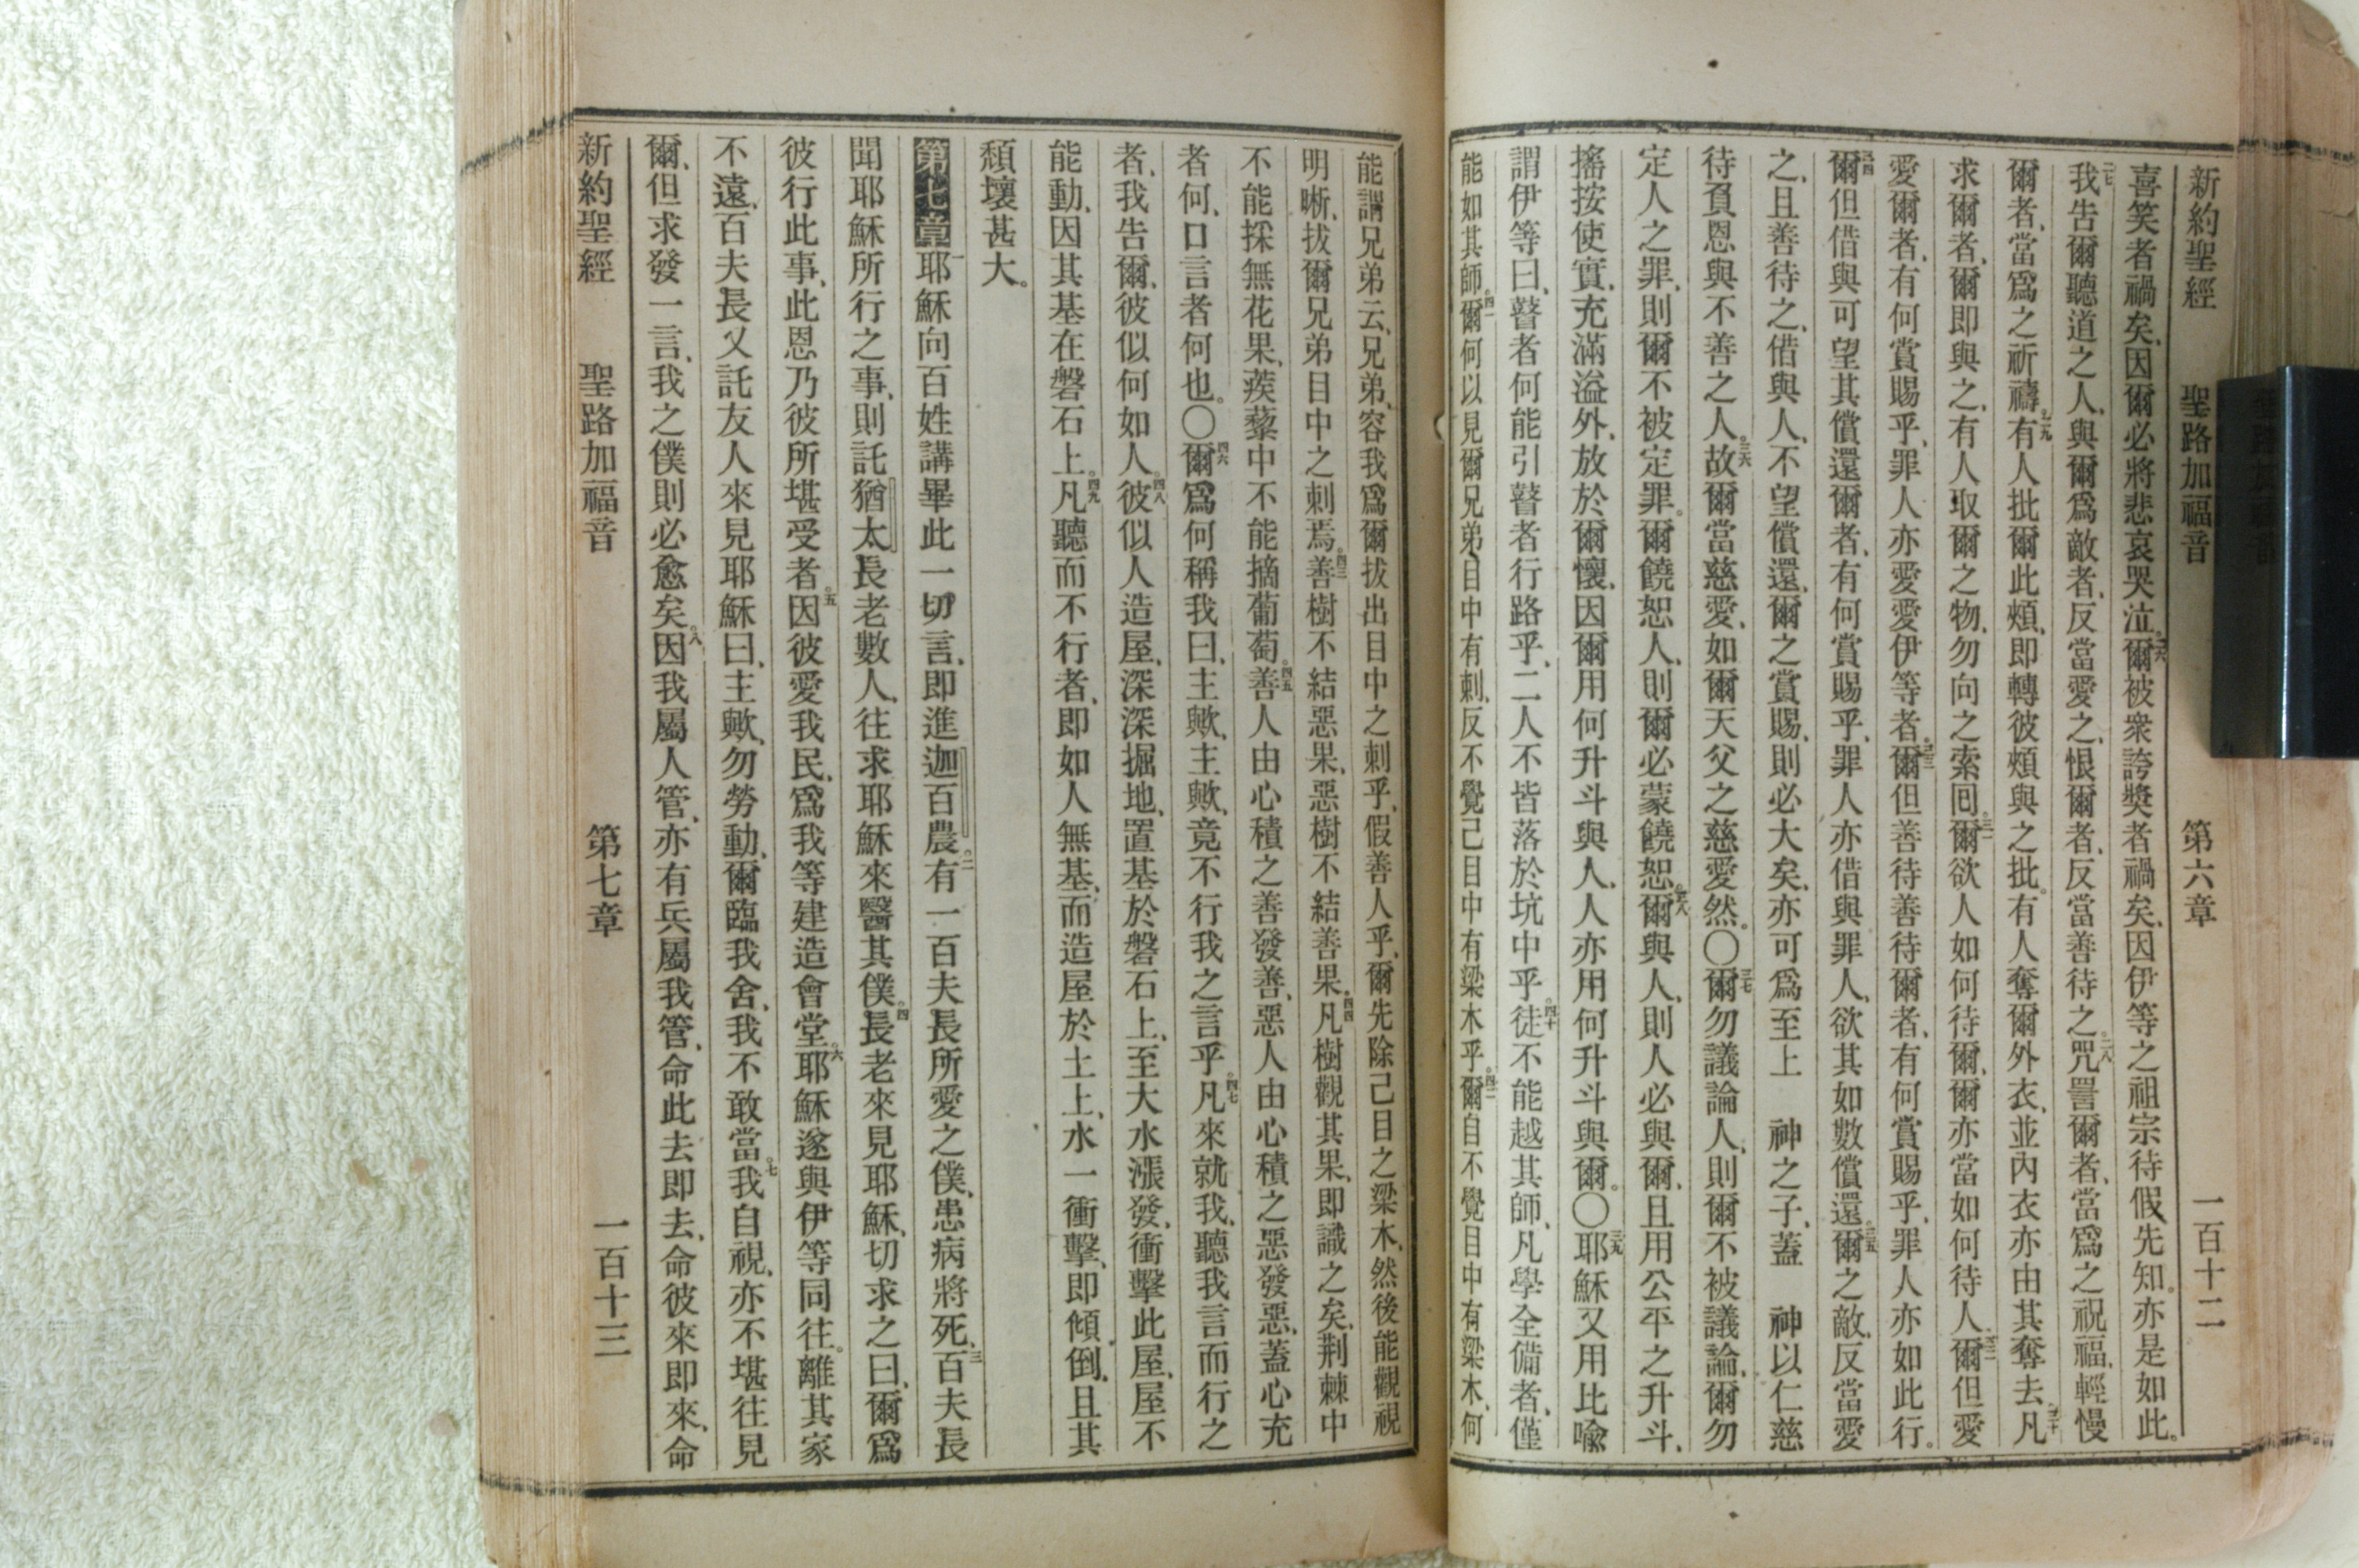 新約聖經 聖路加福音 第六章 一百十二
喜笑者禍矣、因爾必將悲哀哭泣。二六爾被衆誇獎者禍矣、因伊等之祖宗待假先知。亦是如此。
二七我告爾聽道之人、與爾爲敵者、反當愛之、恨爾者、反當善待之。二八咒詈爾者、當爲之祝福、輕慢
爾者、當爲之祈禱。二九有人批爾此頰、即轉彼頰與之批。有人奪爾外衣、並內衣亦由其奪去。三十凡
求爾者、爾即與之、有人取爾之物、勿向之索回。三一爾欲人如何待爾、爾亦當如何待人。三二爾但愛
愛爾者、有何賞賜乎、罪人亦愛愛伊等者。三三爾但善待善待爾者、有何賞賜乎、罪人亦如此行。
三四爾但借與可望其償還爾者、有何賞賜乎、罪人亦借與罪人、欲其如數償還。三五爾之敵、反當愛
之、且善待之、借與人、不望償還、爾之賞賜、則必大矣、亦可爲至上 神之子、蓋 神以仁慈
待負恩與不善之人。三六故爾當慈愛、如爾天父之慈愛然。〇三七爾勿議論人、則爾不被議論、爾勿
定人之罪、則爾不被定罪。爾饒恕人、則爾必蒙饒恕。三八爾與人、則人必與爾、且用公平之升斗、
搖按使實、充滿溢外、放於爾懷、因爾用何升斗與人、人亦用何升斗與爾。〇三九耶穌又用比喻
謂伊等曰、瞽者何能引瞽者行路乎、二人不皆落於坑中乎。四十徒不能越其師、凡學全備者、僅
能如其師。四一爾何以見爾兄弟目中有刺、反不覺己目中有梁木乎。四二爾自不覺目中有梁木、何
能謂兄弟云、兄弟、容我爲爾拔出目中之刺乎、假善人乎、爾先除己目之梁木、然後能觀視
明晰、拔爾兄弟目中之刺焉。四三善樹不結惡果、惡樹不結善果。四四凡樹觀其果、即識之矣、荆棘中
不能採無花果、蒺藜中不能摘葡萄。四五善人由心積之善發善、惡人由心積之惡發惡、蓋心充
者何、口言者何也。〇四六爾爲何稱我曰、主歟、主歟、竟不行我之言乎。四七凡來就我、聽我言而行之
者、我告爾、彼似何如人。四八彼似人造屋、深深掘地、置基於磐石上、至大水漲發、衝擊此屋、屋不
能動、因其基在磐石上。四九凡聽而不行者、即如人無基、而造屋於土上、水一衝擊、即傾倒、且其
頹壞甚大。
第七章 一耶穌向百姓講畢此一切言、即進迦百農。二有一百夫長所愛之僕、患病將死、三百夫長
聞耶穌所行之事、則託猶太長老數人、往求耶穌來醫其僕。四長老來見耶穌、切求之曰、爾爲
彼行此事、此恩乃彼所堪受者。五因彼愛我民、爲我等建造會堂。六耶穌遂與伊等同往。離其家
不遠、百夫長又託友人來見耶穌曰、主歟、勿勞動、爾臨我舍、我不敢當。七我自視、亦不堪往見
爾、但求發一言、我之僕則必愈矣。八因我屬人管、亦有兵屬我管、命此去即去、命彼來即來、命
新約聖經 聖路加福音 第七章 一百十三